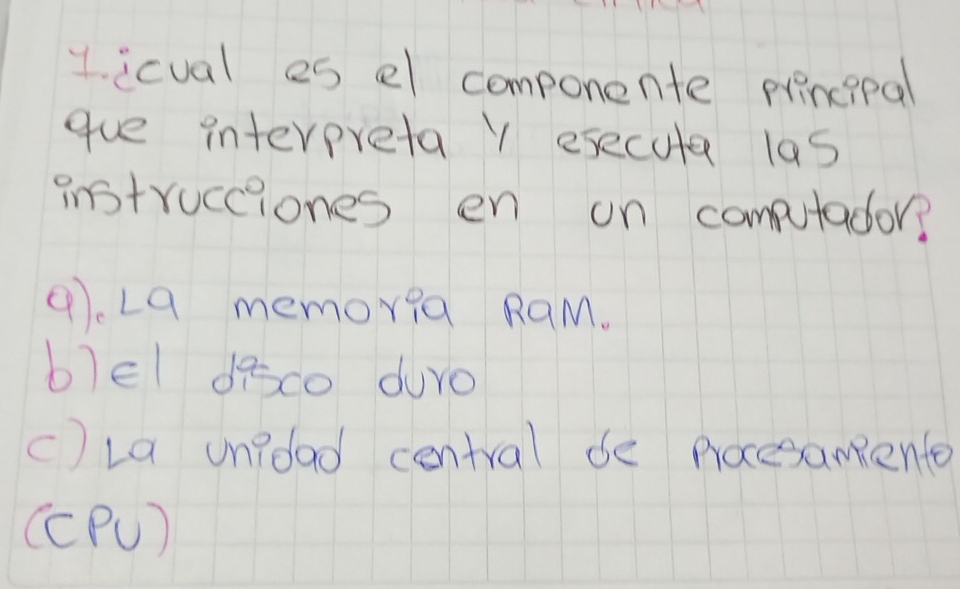 1. ¿cual es el componente principal
que interpreta y esecuta las
instrucciones en un computador?
a). La memoria RAM.
b) el disco duro
c) La unidad central de procesamiento
(CPU)